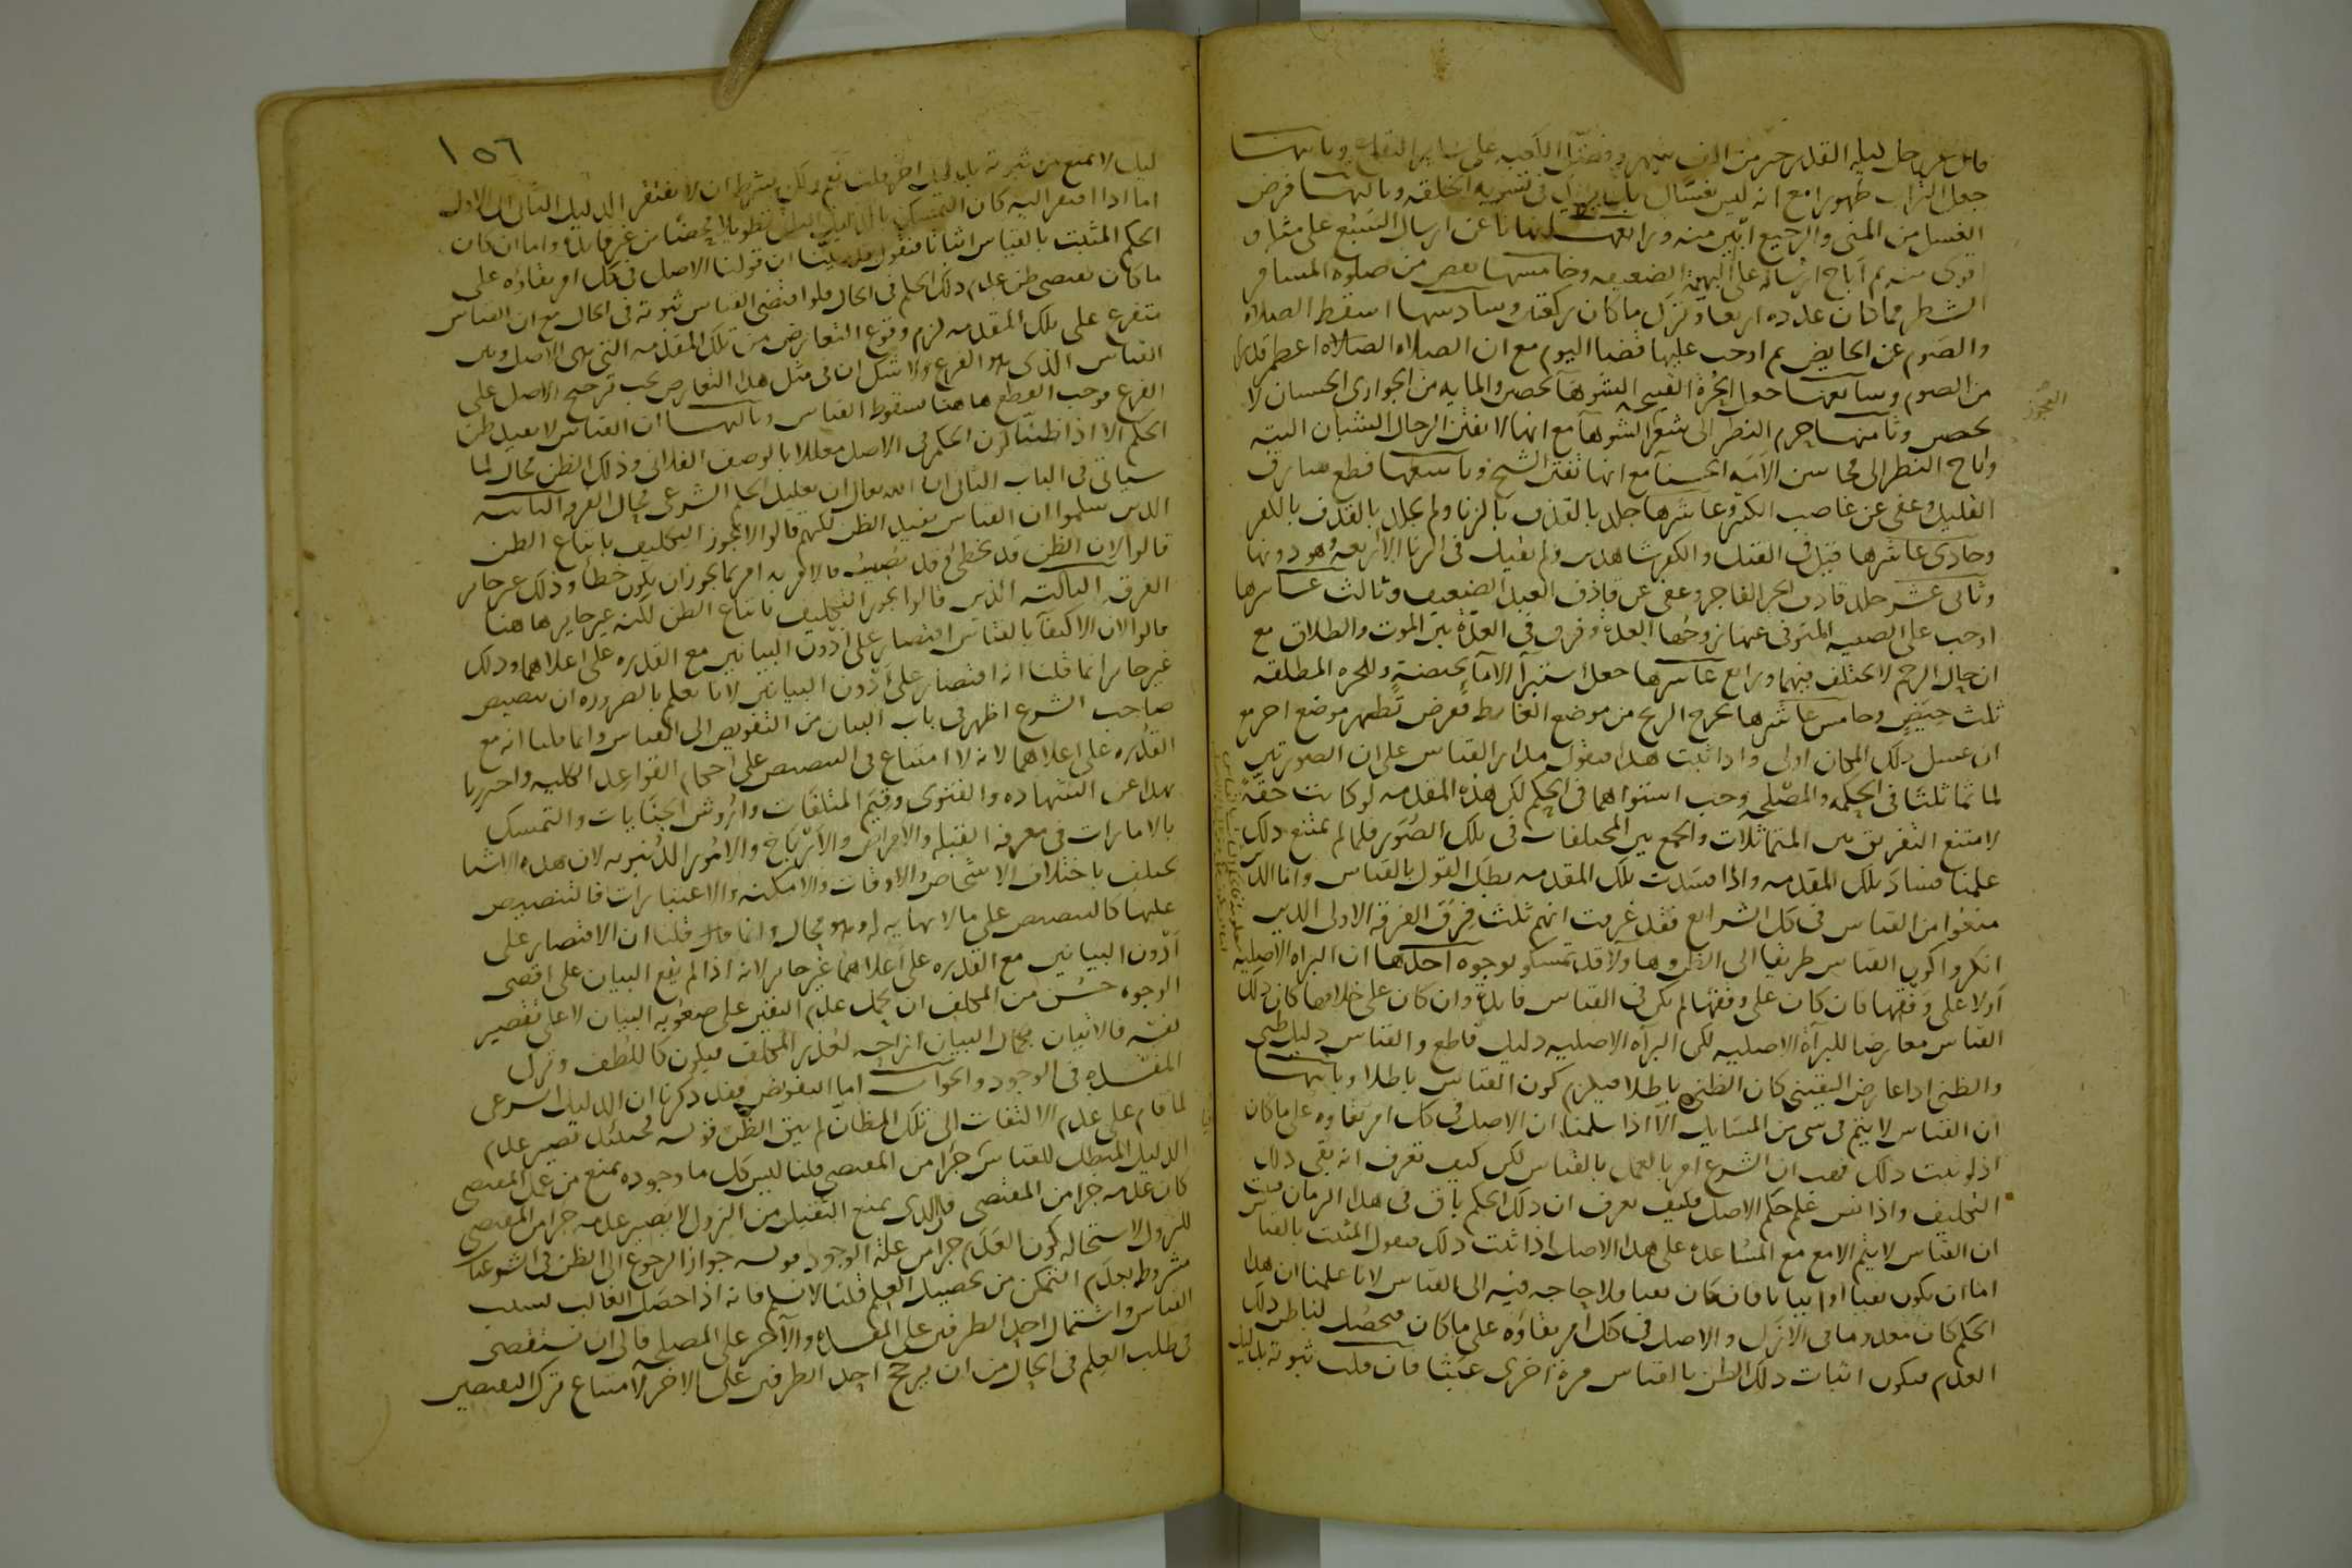 قال عز وجل ليلة القدر خير من الف شهر وفضل الكعبه على سائر البقاع وثانيها
جعل التراب طهورا مع انه ليس بغسال بل يزيد في تشويه الخلقه وثالثها فرض
الغسل من المنى والرجيع انتن منه ورابعها نهانا عن ارسال السبع على مثله و
اقوى منه ثم اباح ارساله على البهيمة الضعيفه وخامسها نقص من صلوة المسافر
الشطر مما كان عدده اربعا وترك ما كان ركعتين وسادسها اسقط الصلاة
والصوم عن الحايض ثم اوجب عليها قضا اليوم مع ان الصلاه الصلاه اعظم قدرا
من الصوم وسابعها جعل الحرة القبيحه الشوها تحصن والمايه من الجوارى الحسان لا
تحصن وثامنها حرم النظر الى شعر الشوها مع انها لا تفتن الرجال الشبان البته
واباح النظر الى محاسن الامه الحسنا مع انها تفتن الشيخ وتاسعها قطع سارق
القليل وعفى عن غاصب الكثير وعاشرها جلد بالقذف بالزنا ولم يجلد بالقذف بالكفر
وحادى عاشرها قبل في القتل والكفر شاهدين ولم يقبل في الزنا الا اربعه وهو دونها
وثانى عشر جلد قاذف الحر الفاجر وعفى عن قاذف العبد العفيف وثالث عاشرها
اوجب على الصغيره المتوفى عنها زوجها العدة وفرق في العدة بين الموت والطلاق مع
ان حال الرحم لا يختلف فيهما ورابع عاشرها جعل استبرآ الامآ بحيضة وللحره المطلقه
ثلث حيض وخامس عاشرها يخرج الريح من موضع الغائط ففرض تطهير موضع اخر مع
ان غسل ذلك المكان اولى واذا ثبت هذا فنقول مدار القياس على ان الصورتين
لما تماثلتا في الحكمه والمصلحه وجب استواهما في الحكم لكن هذه المقدمه لو كانت حقة
لامتنع التفريق بين المتماثلات والجمع بين المختلفات في تلك الصور فلما لم يمتنع ذلك
علمنا فساد تلك المقدمه واذا فسدت تلك المقدمه بطل القول بالقياس واما الذين
منعوا من القياس في كل الشرايع فقد عرفت انهم ثلث فرق الفرقة الاولى الذين
انكروا كون القياس طريقا الى الظن وهاولآ قد تمسكو بوجوه احدها ان البراه الاصليه
اولا على وفقها فان كان على وفقها لم يكن في القياس فايدة وان كان على خلافها كان ذلك
القياس معارضا للبرآة الاصليه لكن البرآه الاصليه دليل قاطع والقياس دليل ظنى
والظنى اذا عارض اليقينى كان الظنى باطلا فيلزم كون القياس باطلا وثانيها
ان القياس لا يتم في شى من المسايل الا اذا سلمنا ان الاصل في كل امر بقاوه على ما كان
اذ لو ثبت ذلك فهب ان الشرع امر بالعمل بالقياس لكن كيف تعرف انه بقى ذلك
التكليف واذا ثبت علم حكم الاصل فكيف يعرف ان ذلك الحكم باق في هذا الزمان فثبت
ان القياس لا يتم الا مع المساعدة على هذا الاصل اذا ثبت ذلك فنقول المثبت بالقيا
اما ان يكون نفيا او اثباتا فان كان نفيا فلا حاجه فيه الى القياس لانا علمنا ان هذا
الحكم كان معدوما في الازل والاصل في كل امر بقاؤه على ما كان فيحصل لنا ظن ذلك
العدم فيكون اثبات ذلك الظن بالقياس مرة اخرى عبثا فان قلت ثبوته بدليل
العجوز
١٥٦
ليل لا يمنع من ثبوته بدليل اخر قلت نعم ولكن بشرط ان لا يفتقر الدليل الثانى الى الاول
اما اذا افتقر اليه كان التمسك بالدليل الثانى تطويلا محضا من غير فايدة واما ان كان
الحكم المثبت بالقياس اثباتا فنقول قد بينا ان قولنا الاصل في كل امر بقاؤه على
ما كان يقتضى ظن عدم ذلك الحكم في الحال فلو اقتضى القياس ثبوته في الحال مع ان القياس
متفرع على تلك المقدمه لزم وقوع التعارض بين تلك المقدمه التى هى الاصل وبين
القياس الذى هو الفرع ولا شك ان في مثل هذا التعارض يجب ترجيح الاصل على
الفرع فوجب القطع هاهنا بسقوط القياس وثالثها ان القياس لا يفيد ظن
الحكم الا اذا ظننا كون الحكم في الاصل معللا بالوصف الفلانى وذلك الظن محال لما
سياتى في الباب الثانى ان شا الله تعالى ان تعليل الحكم الشرعى محال الفرقه الثانيه
الذين سلموا ان القياس يفيد الظن لكنهم قالوا لا يجوز التكليف باتباع الظن
قالوا لان الظن قد يخطى وقد يصيب فالامر به امر بما يجوز ان يكون خطأ وذلك غير جايز
الفرقه الثالثه الذين قالوا يجوز التكليف باتباع الظن لكنه غير جايز هاهنا
قالوا لان الاكتفآ بالقياس اقتصار على ادون البيانين مع القدره على اعلاهما وذلك
غير جايز انما قلنا انه اقتصار على ادون البيانين لانا نعلم بالضروره ان تنصيص
صاحب الشرع اظهر في باب البيان من التفويض الى القياس وانما قلنا انه مع
القدره على اعلاهما لانه لا امتناع في التنصيص على احكام القواعد الكليه واحترزنا
بهذا عن الشهاده والفتوى وقيم المتلفات واروش الجنايات والتمسك
بالامارات في معرفة القبله والامراض والارباح والامور الدنيويه لان هذه الاشيا
تختلف باختلاف الاشخاص والاوقات والامكنه والاعتبارات فالتنصيص
عليها كالتنصيص على ما لا نهايه له وهو محال وانما قلنا ان الاقتصار على
ادون البيانين مع القدره على اعلاهما غير جايز لانه اذا لم يقع البيان على اقصى
الوجوه حسن من المكلف ان يحمل عدم التبين على صعوبه البيان لا على تقصير
نفسه فالاتيان بكمال البيان ازاحه لعذر المكلف فيكون كاللطف وترك
المفسده في الوجود والجواب اما النقوض فقد ذكرنا ان الدليل الشرعى
لما قام على عدم الالتفات الى تلك المظان لم يبق الظن قوله فحينئذ يصير عدم
الدليل المبطل للقياس جزا من المقتضى قلنا ليس كل ما وجوده يمنع من عمل المقتضى
كان عدمه جزا من المقتضى فالذى يمنع الثقيل من النزول لا يصير عدمه جزا من المقتضى
للنزول لاستحاله كون العدم جزا من علة الوجود قوله جواز الرجوع الى الظن في الشرعيات
مشروط بعدم التمكن من تحصيل العلم قلنا لا نسلم فانه اذا حصل الغالب بسبب
القياس واشتمال احد الطرفين على المفسدة والآخر على المصلحه فالى ان نستقصى
في طلب العلم في الحال من ان يرجح احد الطرفين على الاخر لامتناع ترك النقيضين